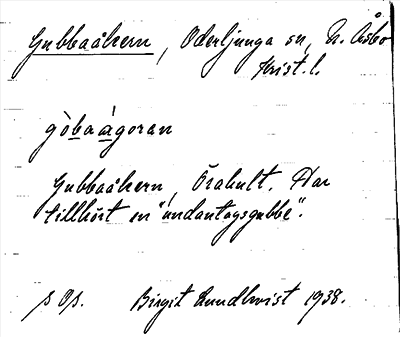 Gubbaåkern, Oderljunga sn, N. Åsbo
Krist. l.
gòbaágoran
Gubbaåkern, Örahult. Har
tillhört en "undantagsgubbe".
s Os. Birgit Lundkvist 1938.